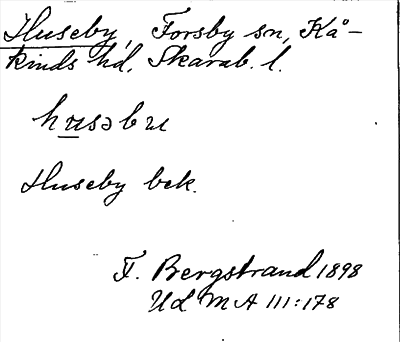 Huseby, Forsby sn, Kå-
kinds hd, Skarab. l.
husəbu
Huseby bek.
F. Bergstrand 1898
Ud M A III:178